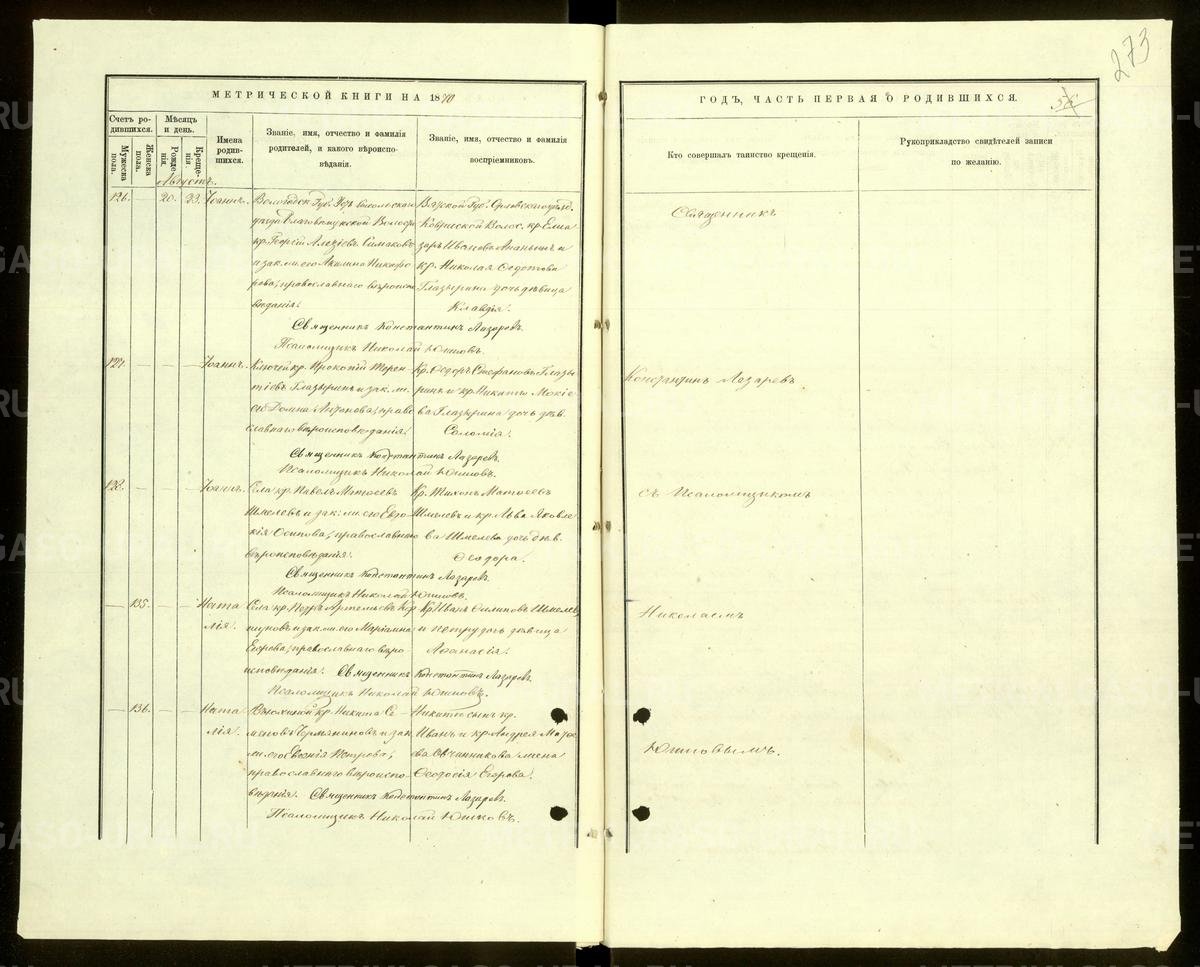 273
МЕТРИЧЕСКОЙ КНИГИ НА 1890
ГОДЪ, ЧАСТЬ ПЕРВАЯ О РОДИВШИХСЯ.
Счетъ родившихся.
Мужеска пола.
Женска пола.
Мѣсяцъ и день.
Рожденія.
Крещенія.
Имена родившихся.
Званіе, имя, отчество и фамилія
родителей, и какого вѣроисповѣданія.
Званіе, имя, отчество и фамилія
воспріемниковъ.
Кто совершалъ таинство крещенія.
Рукоприкладство свидѣтелей записи
по желанію.
Августъ.
126. — 20. 23. Іоаннъ.
кр. Георгій Алексіевъ Симаковъ
и зак. ж. его Акилина Никифорова, православнаго вѣроисповѣданія.
Вятской Губ. Орловскаго уѣзд.
кр. Николая Ѳедотова
Глазырина дочь дѣвица
Клавдія.
Священникъ Константинъ Лазаревъ.
Псаломщикъ Николай Юшковъ.
127. — — — Іоаннъ.
кр. Прокопій Терентіевъ Глазыринъ и зак. ж.
его Домна Антонова, православнаго вѣроисповѣданія.
Кр. Ѳеодоръ Стефановъ Глазыринъ и кр. Никиты Мокіева Глазырина дочь дѣв.
Соломія.
Священникъ Константинъ Лазаревъ.
Псаломщикъ Николай Юшковъ.
128. — — — Іоаннъ.
Села кр. Павелъ Матѳеевъ
Шмелевъ и зак. ж. его Евдокія Осипова, православнаго
вѣроисповѣданія.
Кр. Тихонъ Матѳеевъ
Шмелевъ и кр. Льва Яковлева Шмелева дочь дѣв.
Ѳеодора.
Священникъ Константинъ Лазаревъ.
Псаломщикъ Николай Юшковъ.
— 135. — — Наталія.
Села кр. Петръ Артемьевъ
и зак. ж. его Маріамна
Егорова, православнаго вѣроисповѣданія.
Кр. Иванъ Филиповъ Шмелевъ
дочь дѣвица
Аѳанасія.
Священникъ Константинъ Лазаревъ.
Псаломщикъ Николай Юшковъ.
— 136. — — Наталія.
кр. Никита Семеновъ
и зак.
ж. его Евѳенія Петрова,
православнаго вѣроисповѣданія.
Никиты сынъ кр.
Иванъ и кр. Андрея
Овчинникова жена
Ѳеодосія Егорова.
Священникъ Константинъ Лазаревъ.
Псаломщикъ Николай Юшковъ.
Священникъ
Константинъ Лазаревъ
съ Псаломщикомъ
Николаемъ
Юшковымъ.